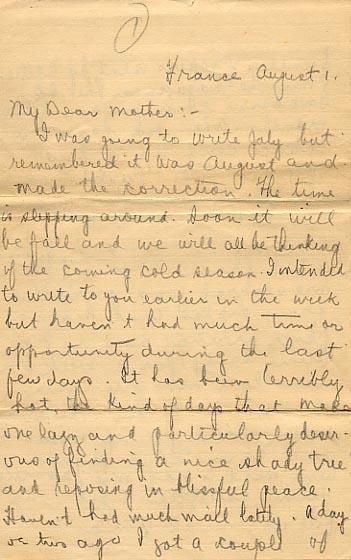 1
France August 1.
My Dear Mother:-
I was going to write July but
remembered it was August and
made the correction. The time
is slipping around. Soon it will
be fall and we will all be thinking
of the coming cold season. I intended
to write to you earlier in the week
but haven't had much time or
opportunity during the last
few days. It has been terribly
hot, the kind of days that make
one lazy and particularly desir-
ous of finding a nice shady tree
and reposing in blissful peace.
Haven't had much mail lately. A day
or two ago I got a couple of